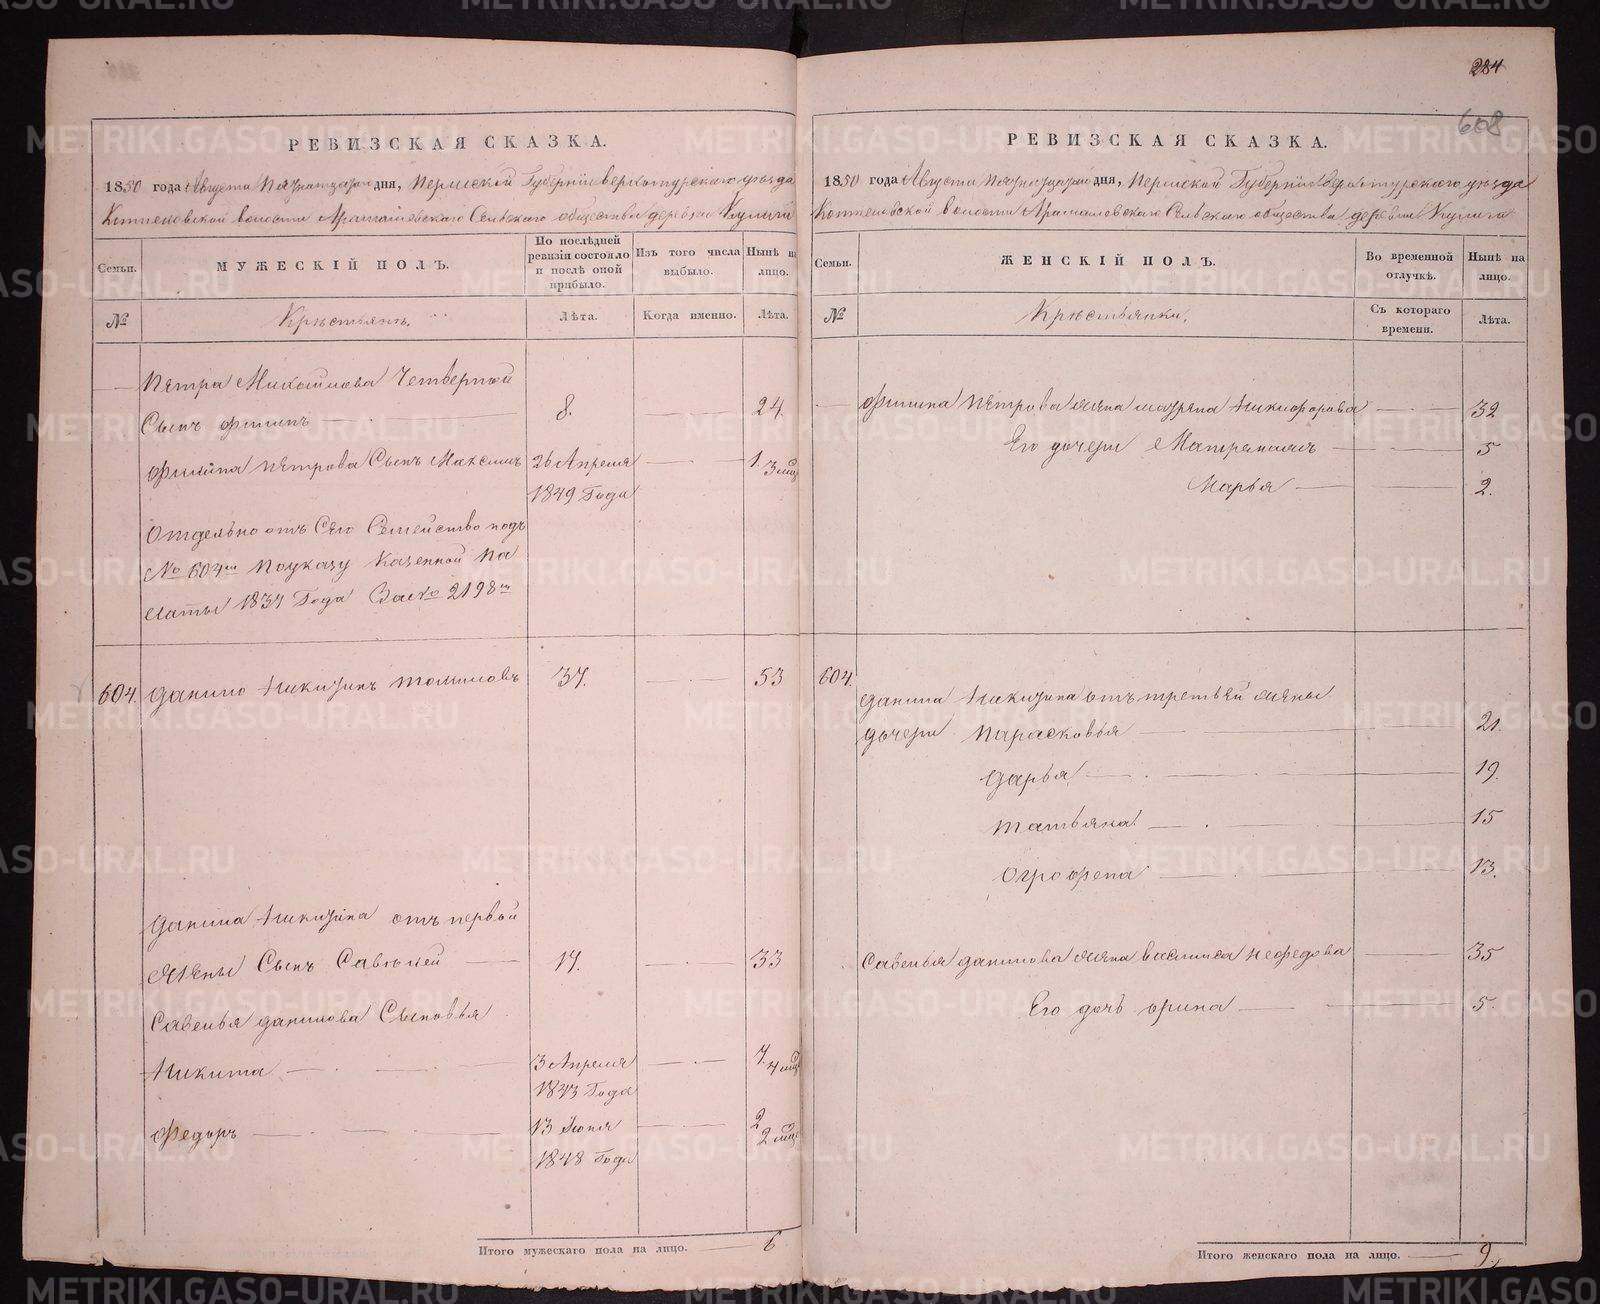 284
608
РЕВИЗСКАЯ СКАЗКА.
1850 года Августа Пятнатцатаго дня, Пермской Губернии верхотурского уезда
волости Арамашевского Сельского общества деревни Кулиги
Семьи.
МУЖЕСКІЙ ПОЛЪ.
По послѣдней ревизіи состояло и послѣ оной прибыло.
Изъ того числа выбыло.
Нынѣ на лицо.
№
Крестьянъ.
Лѣта.
Когда именно.
Лѣта.
Петра Михайлова Четвертой
Сынъ Филипъ 8. 24.
Филипа Петрова Сынъ Максимъ 26 Апреля 1. 3 мѣс
1849 Года
Отдельно отъ Сего Семейство подъ
№ 604м По указу Казенной Па
латы 1837 Года За № 2198м
604. Данило Никитинъ 37. 53
Данила Никитина отъ первой
жены Сынъ Савелей 17. 33
Савелья Данилова Сыновья
Никита 3 Апреля 7. 4 мѣс
1843 Года
Федоръ 13 Июня 2 2 мѣс
1848 Года
Итого мужескаго пола на лицо. 6
РЕВИЗСКАЯ СКАЗКА.
1850 года Августа Пятнатцатаго дня, Пермской Губернии Верхотурского уезда
волости Арамашевского Сельского общества деревни Кулиги
Семьи.
ЖЕНСКІЙ ПОЛЪ.
Во временной отлучкѣ.
Нынѣ на лицо.
№
Крестьянки.
Съ котораго времени.
Лѣта.
Филипа Петрова жена Никифорова 32
Его дочери 5
Марья 2.
604.
Данила Никитина отъ третьей жены
дочери Парасковья 21.
Дарья 19.
Татьяна 15
Огрофена 13.
Савелья Данилова жена Василиса Нефедова 35
Его дочь Орина 5.
Итого женскаго пола на лицо. 9.
METRIKI.GASO-URAL.RU